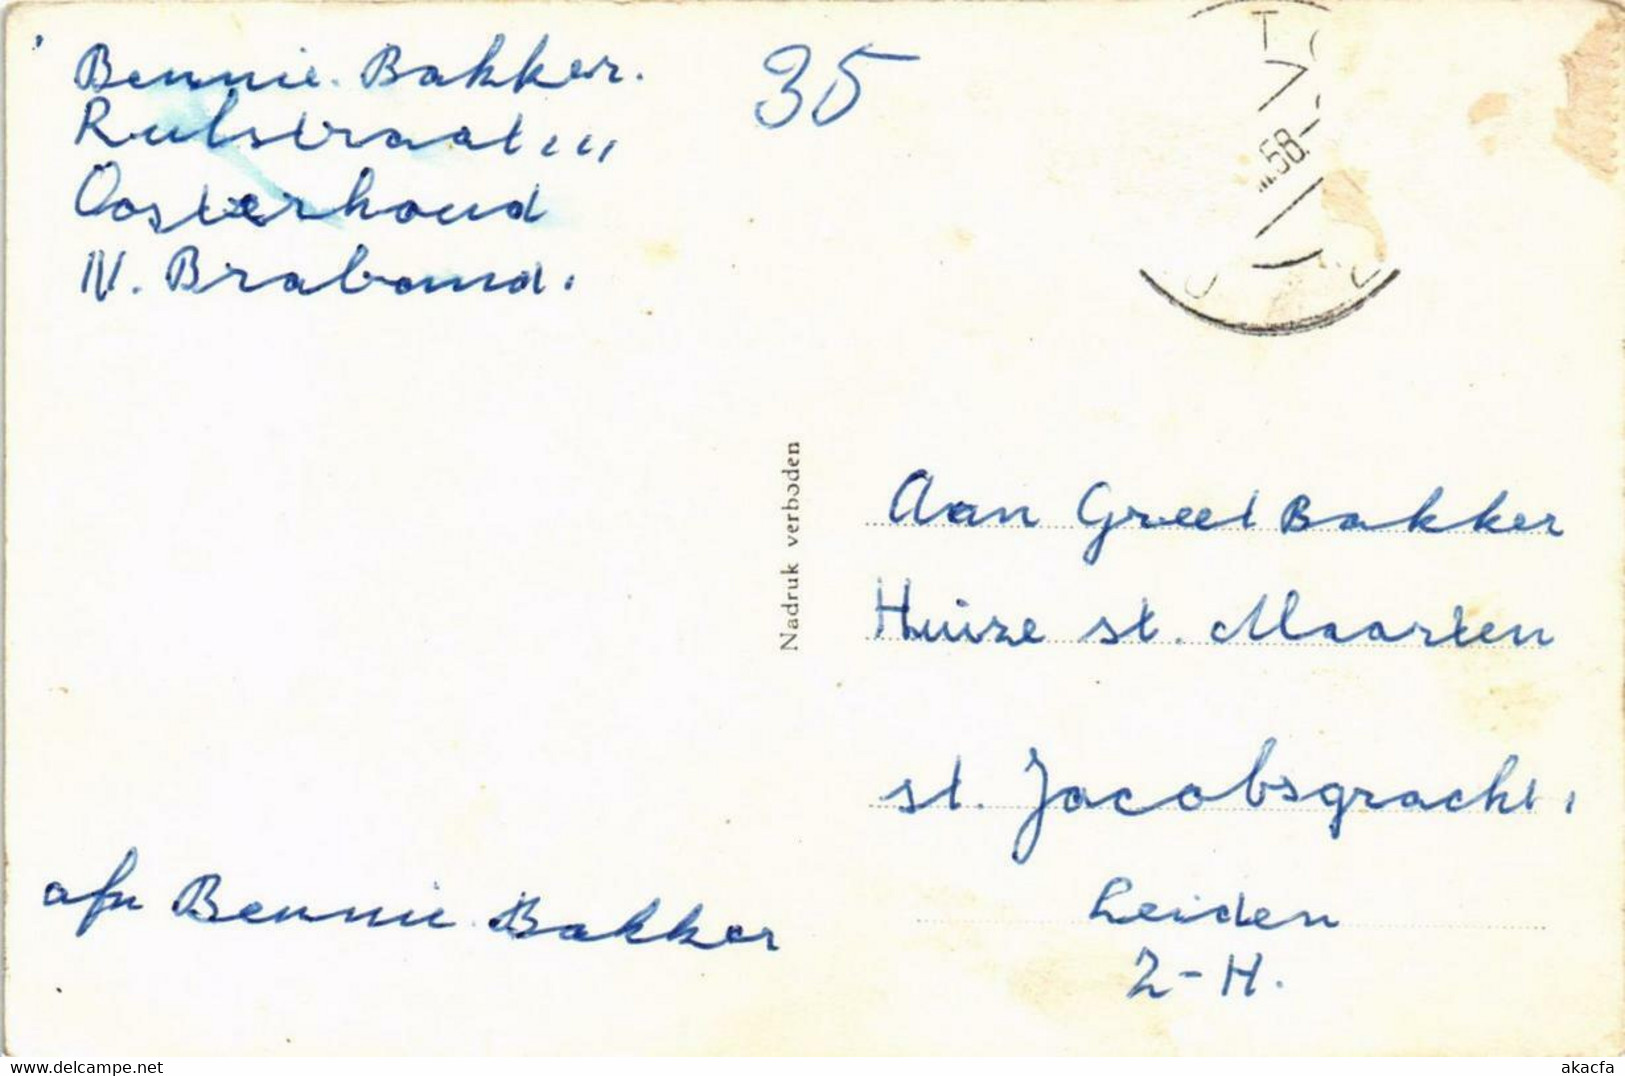 Bennie. Bakker.
Rulstraat 111
Oosterhoud
N. Braband.
35
58.
Nadruk verboden
Aan Greet Bakker
Huize st. Maarten
st. Jacobsgracht 1
Leiden
Z-H.
afz Bennie Bakker
www.delcampe.net
akacfa